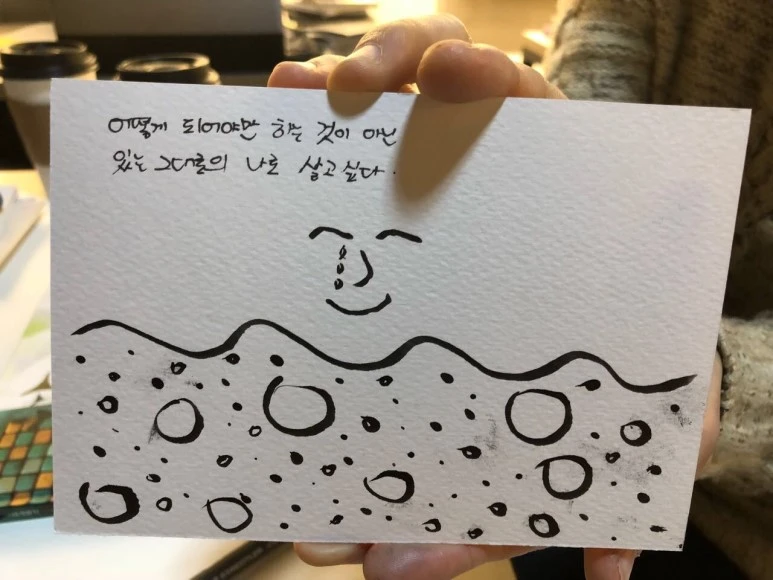 어떻게 되어야만 하는 것이 아닌
있는 그대로의 나로 살고 싶다.